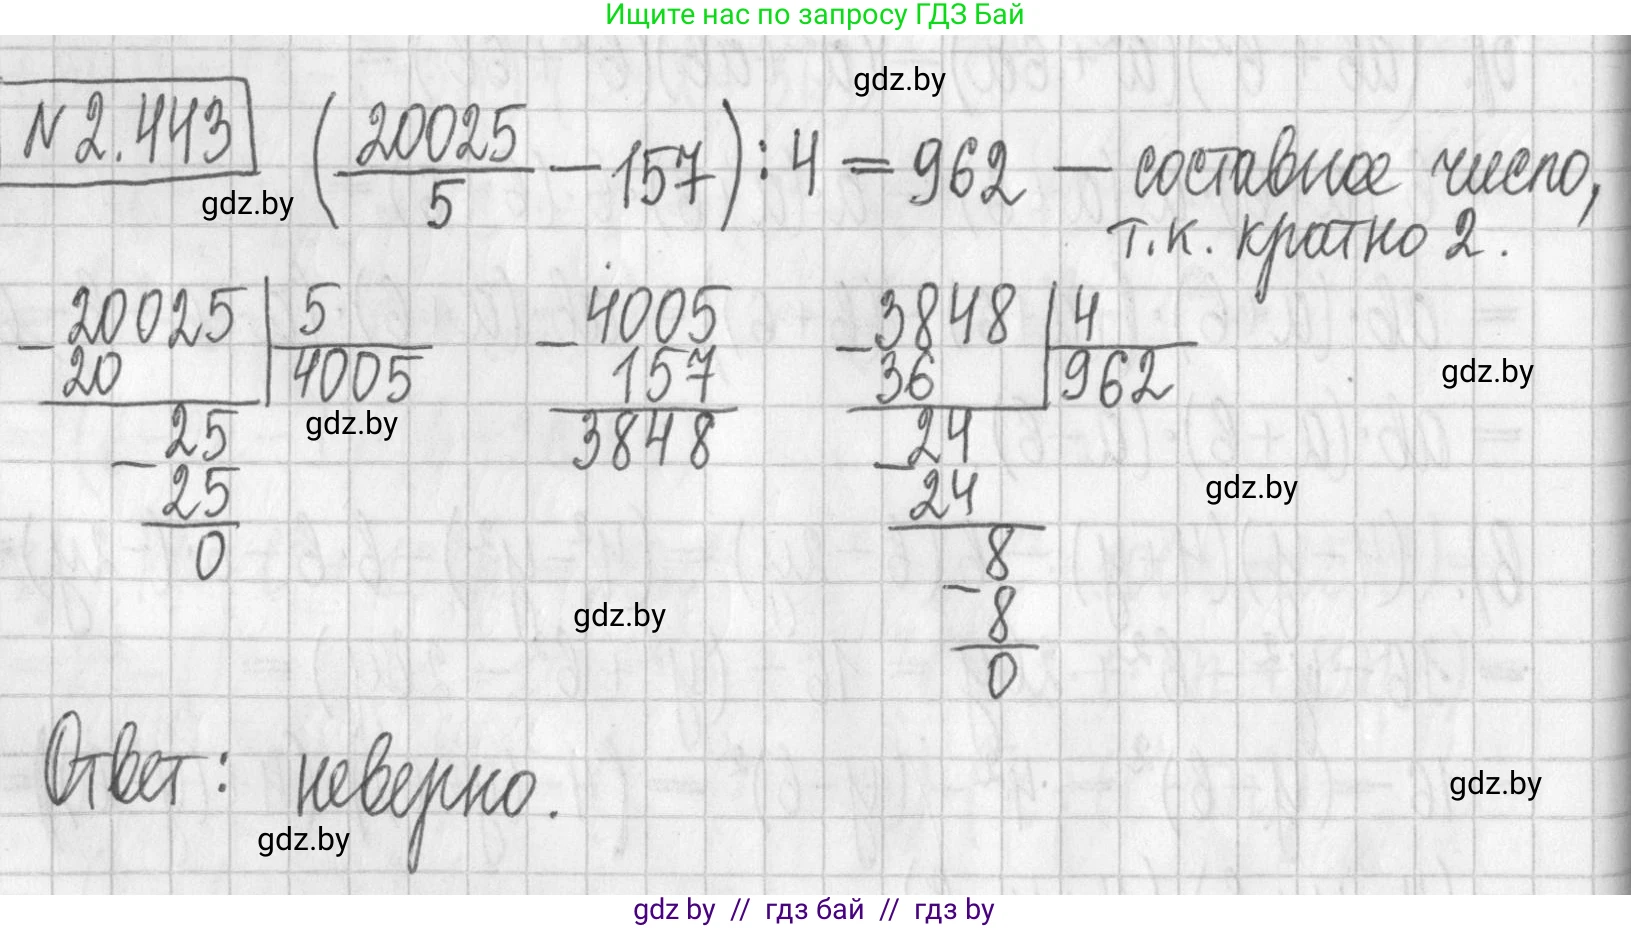 Ищите нас по запросу ГДЗ Бай
gdz.by
N 2.443 (20025/5 - 157) : 4 = 962 — составное число,
т.к. кратно 2.
gdz.by
- 20025 | 5
20 | 4005
25
- 25
0
gdz.by
- 4005
157
3848
- 3848 | 4
36 | 962
24
- 24
8
- 8
0
gdz.by
gdz.by
gdz.by
Ответ: неверно.
gdz.by
gdz.by
gdz by // гдз бай // гдз by